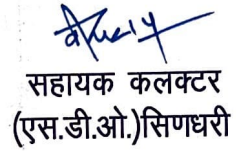 सहायक कलक्टर
(एस.डी.ओ.)सिणधरी